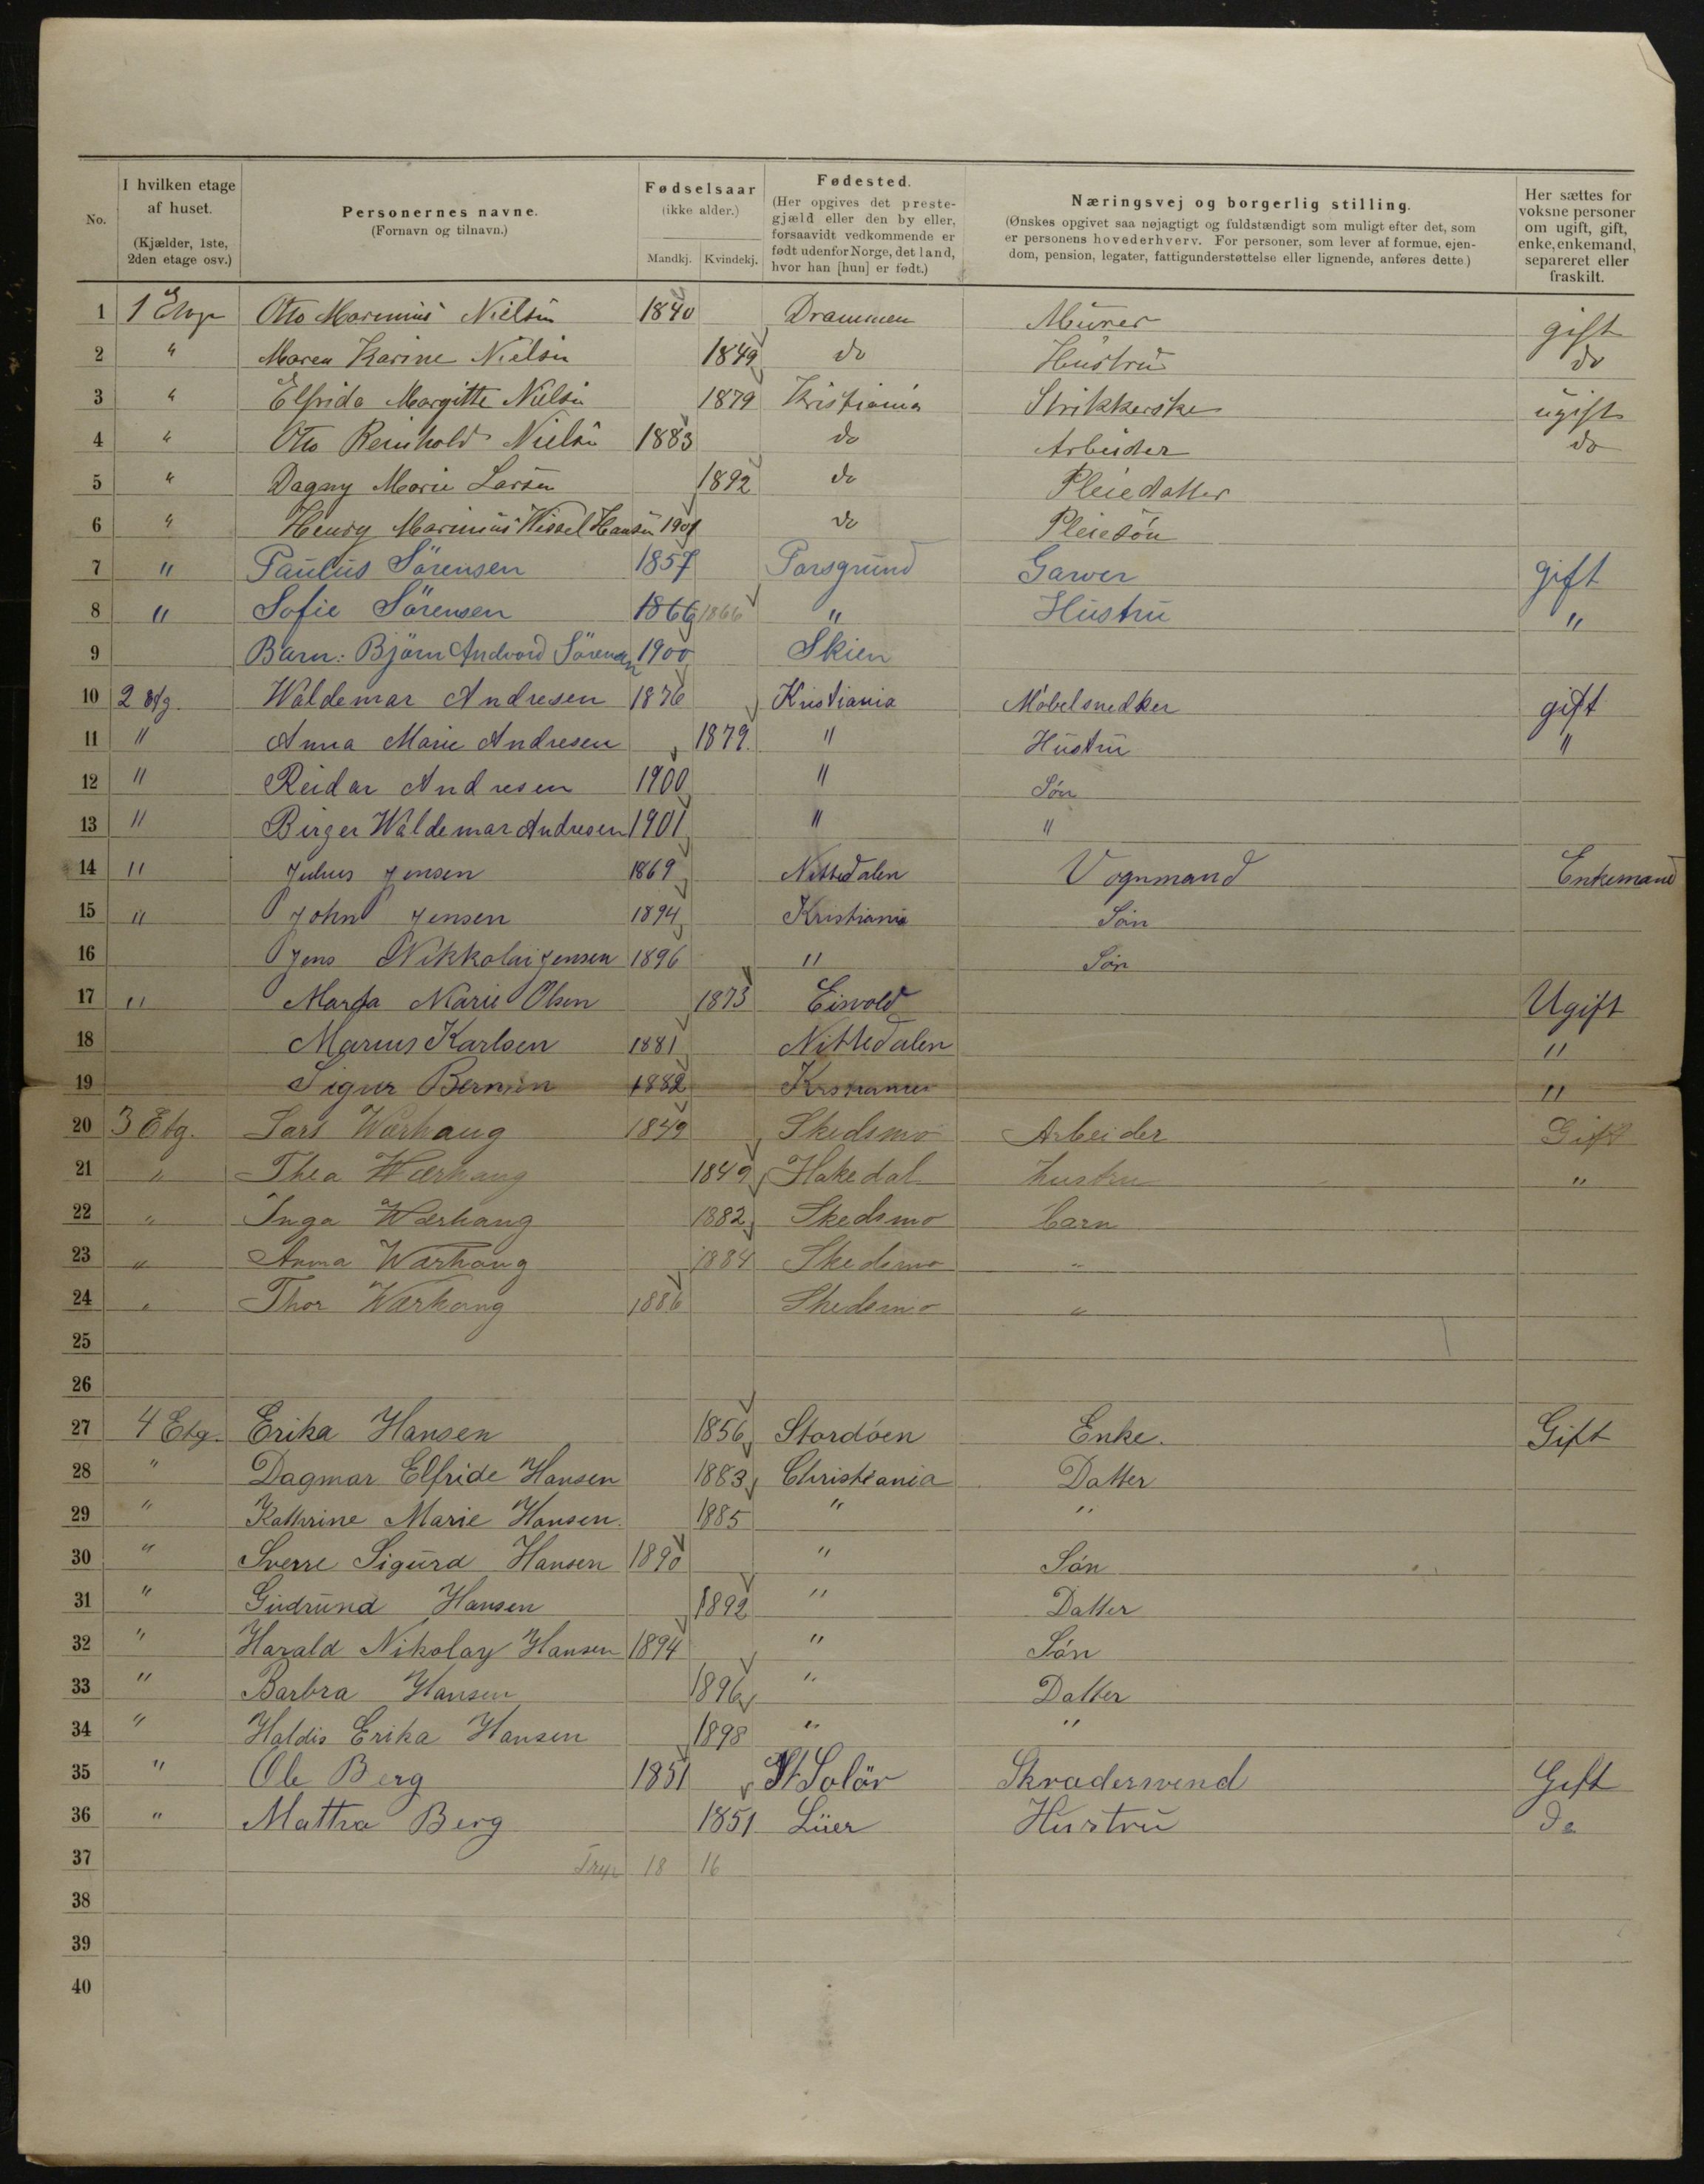 No. I hvilken etage af huset. (Kjælder, 1ste, 2den etage osv.) Personernes navne. (Fornavn og tilnavn.) Fødselsaar (ikke alder.) Mandkj. Kvindekj. Fødested. (Her opgives det prestegjæld eller den by eller, forsaavidt vedkommende er født udenfor Norge, det land, hvor han [hun] er født.) Næringsvej og borgerlig stilling. (Ønskes opgivet saa nøjagtigt og fuldstændigt som muligt efter det, som er personens hovederhverv. For personer, som lever af formue, ejendom, pension, legater, fattigunderstøttelse eller lignende, anføres dette.) Her sættes for voksne personer om ugift, gift, enke, enkemand, separeret eller fraskilt.
1 1 Etage Otto Marinius Nielsen 1840 Drammen Murer gift
2 " Maren Karine Nielsen 1849 do Hustru do
3 " Elfrida Margitte Nielsen 1879 Kristiania Strikkerske ugift
4 " Otto Reinhold Nielsen 1883 do Arbeider do
5 " Dagny Marie Larsen 1892 do Pleiedatter
6 " Henry Marinius Wissel Hansen 1901 do Pleiesön
7 " Paulus Sörensen 1857 Porsgrund Garver gift
8 " Sofie Sörensen 1866 1866 " Hustru "
9 Barn: Björn Andvord Sörensen 1900 Skien
10 2 etg. Waldemar Andresen 1876 Kristiania Møbelsnedker gift
11 " Anna Marie Andresen 1879. " Hustru "
12 " Reidar Andresen 1900 " Søn
13 " Birger Waldemar Andresen 1901 " "
14 " Julius Jensen 1869 Nittedalen Vognmand Enkemand
15 " John Jensen 1894 Kristiania Søn
16 Jens Nikkolai Jensen 1896 " Søn
17 " Marta Marie Olsen 1873 Eisvold Ugift
18 Marius Karlsen 1881 Nittedalen "
19 Sigur 1882 "
20 3 Etg. Lars Wærhaug 1849 Skedsmo Arbeider Gift
21 " Thea Wærhaug 1849 Hakedal hustru "
22 " Inga Wærhaug 1882 Skedsmo barn
23 " Anna Wærhaug 1884 Skedsmo "
24 " Thor Wærhaug 1886 Skedsmo "
25
26
27 4 Etg. Erika Hansen 1856 Stordøen Enke. Gift
28 " Dagmar Elfride Hansen 1883 Christiania Datter
29 " Kathrine Marie Hansen. 1885 " "
30 " Sverre Sigurd Hansen 1890 " Søn
31 " Gudrund Hansen 1892 " Datter
32 " Harald Nikolay Hansen 1894 " Søn
33 " Barbra Hansen 1896 " Datter
34 " Haldis Erika Hansen 1898 " "
35 " Ole Berg 1851 Solör Skrædersvend Gift
36 " Mattra Berg 1851 Lüer Hustru Do
37 18 16
38
39
40